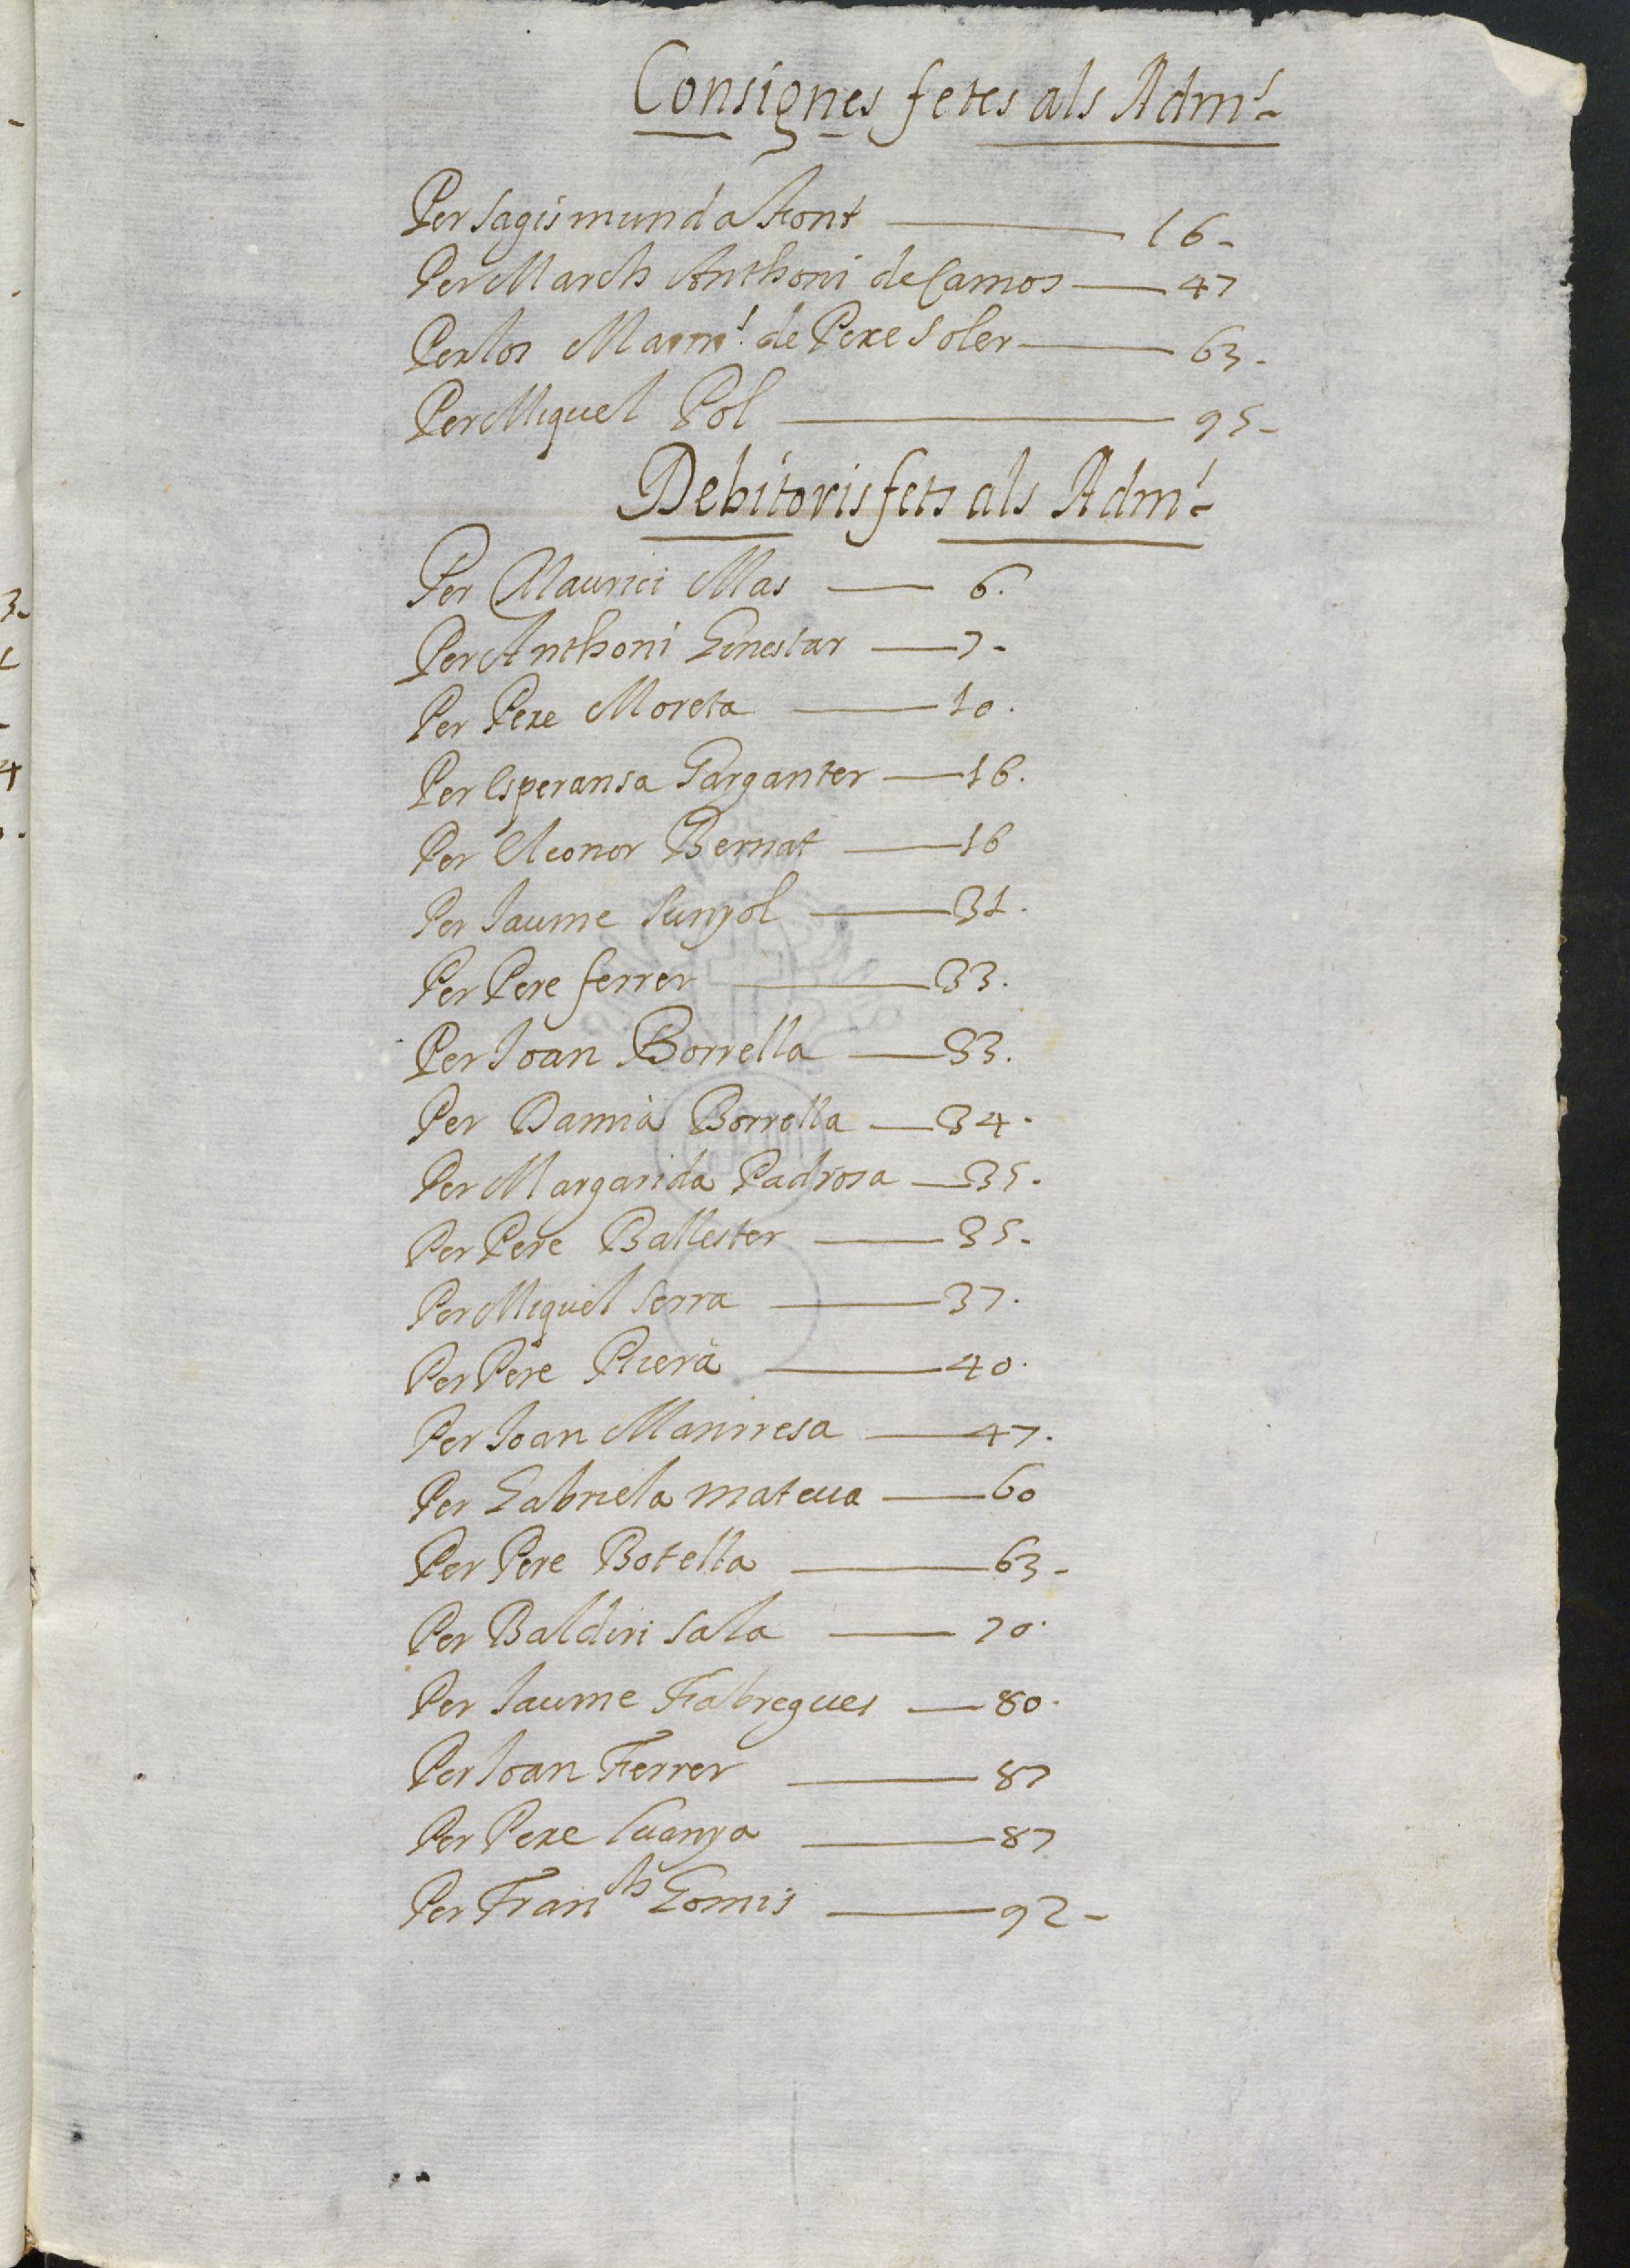 Consignes fetes als Adm.ˢ
Per Sagismunda Font — 16
Per March Anthoni de Camos — 47
Per los Marm.ˢ de Pere Soler — 63
Per Miquel Pol — 95
Debitoris fets als Adm.ˢ
Per Maurici Mas — 6.
Per Anthoni Genestar — 7
Per Pere Moreta — 10.
Per Esperansa Garganter — 16.
Per Eleonor Bernat — 16
Per Jaume Sunyol — 31.
Per Pere ferrer — 33.
Per Joan Borrella — 33.
Per Damià Borrella — 34.
Per Margarida Padrosa — 35.
Per Pere Ballester — 35
Per Miquel Serra — 37.
Per Pere Riera — 40.
Per Joan Manrresa — 47.
Per Gabriela mateua — 60
Per Pere Botella — 63
Per Baldiri Sala — 70.
Per Jaume Fabregues — 80.
Per Joan Ferrer — 87
Per Pere Cuanya — 87
Per Fran.ch Gomis — 92